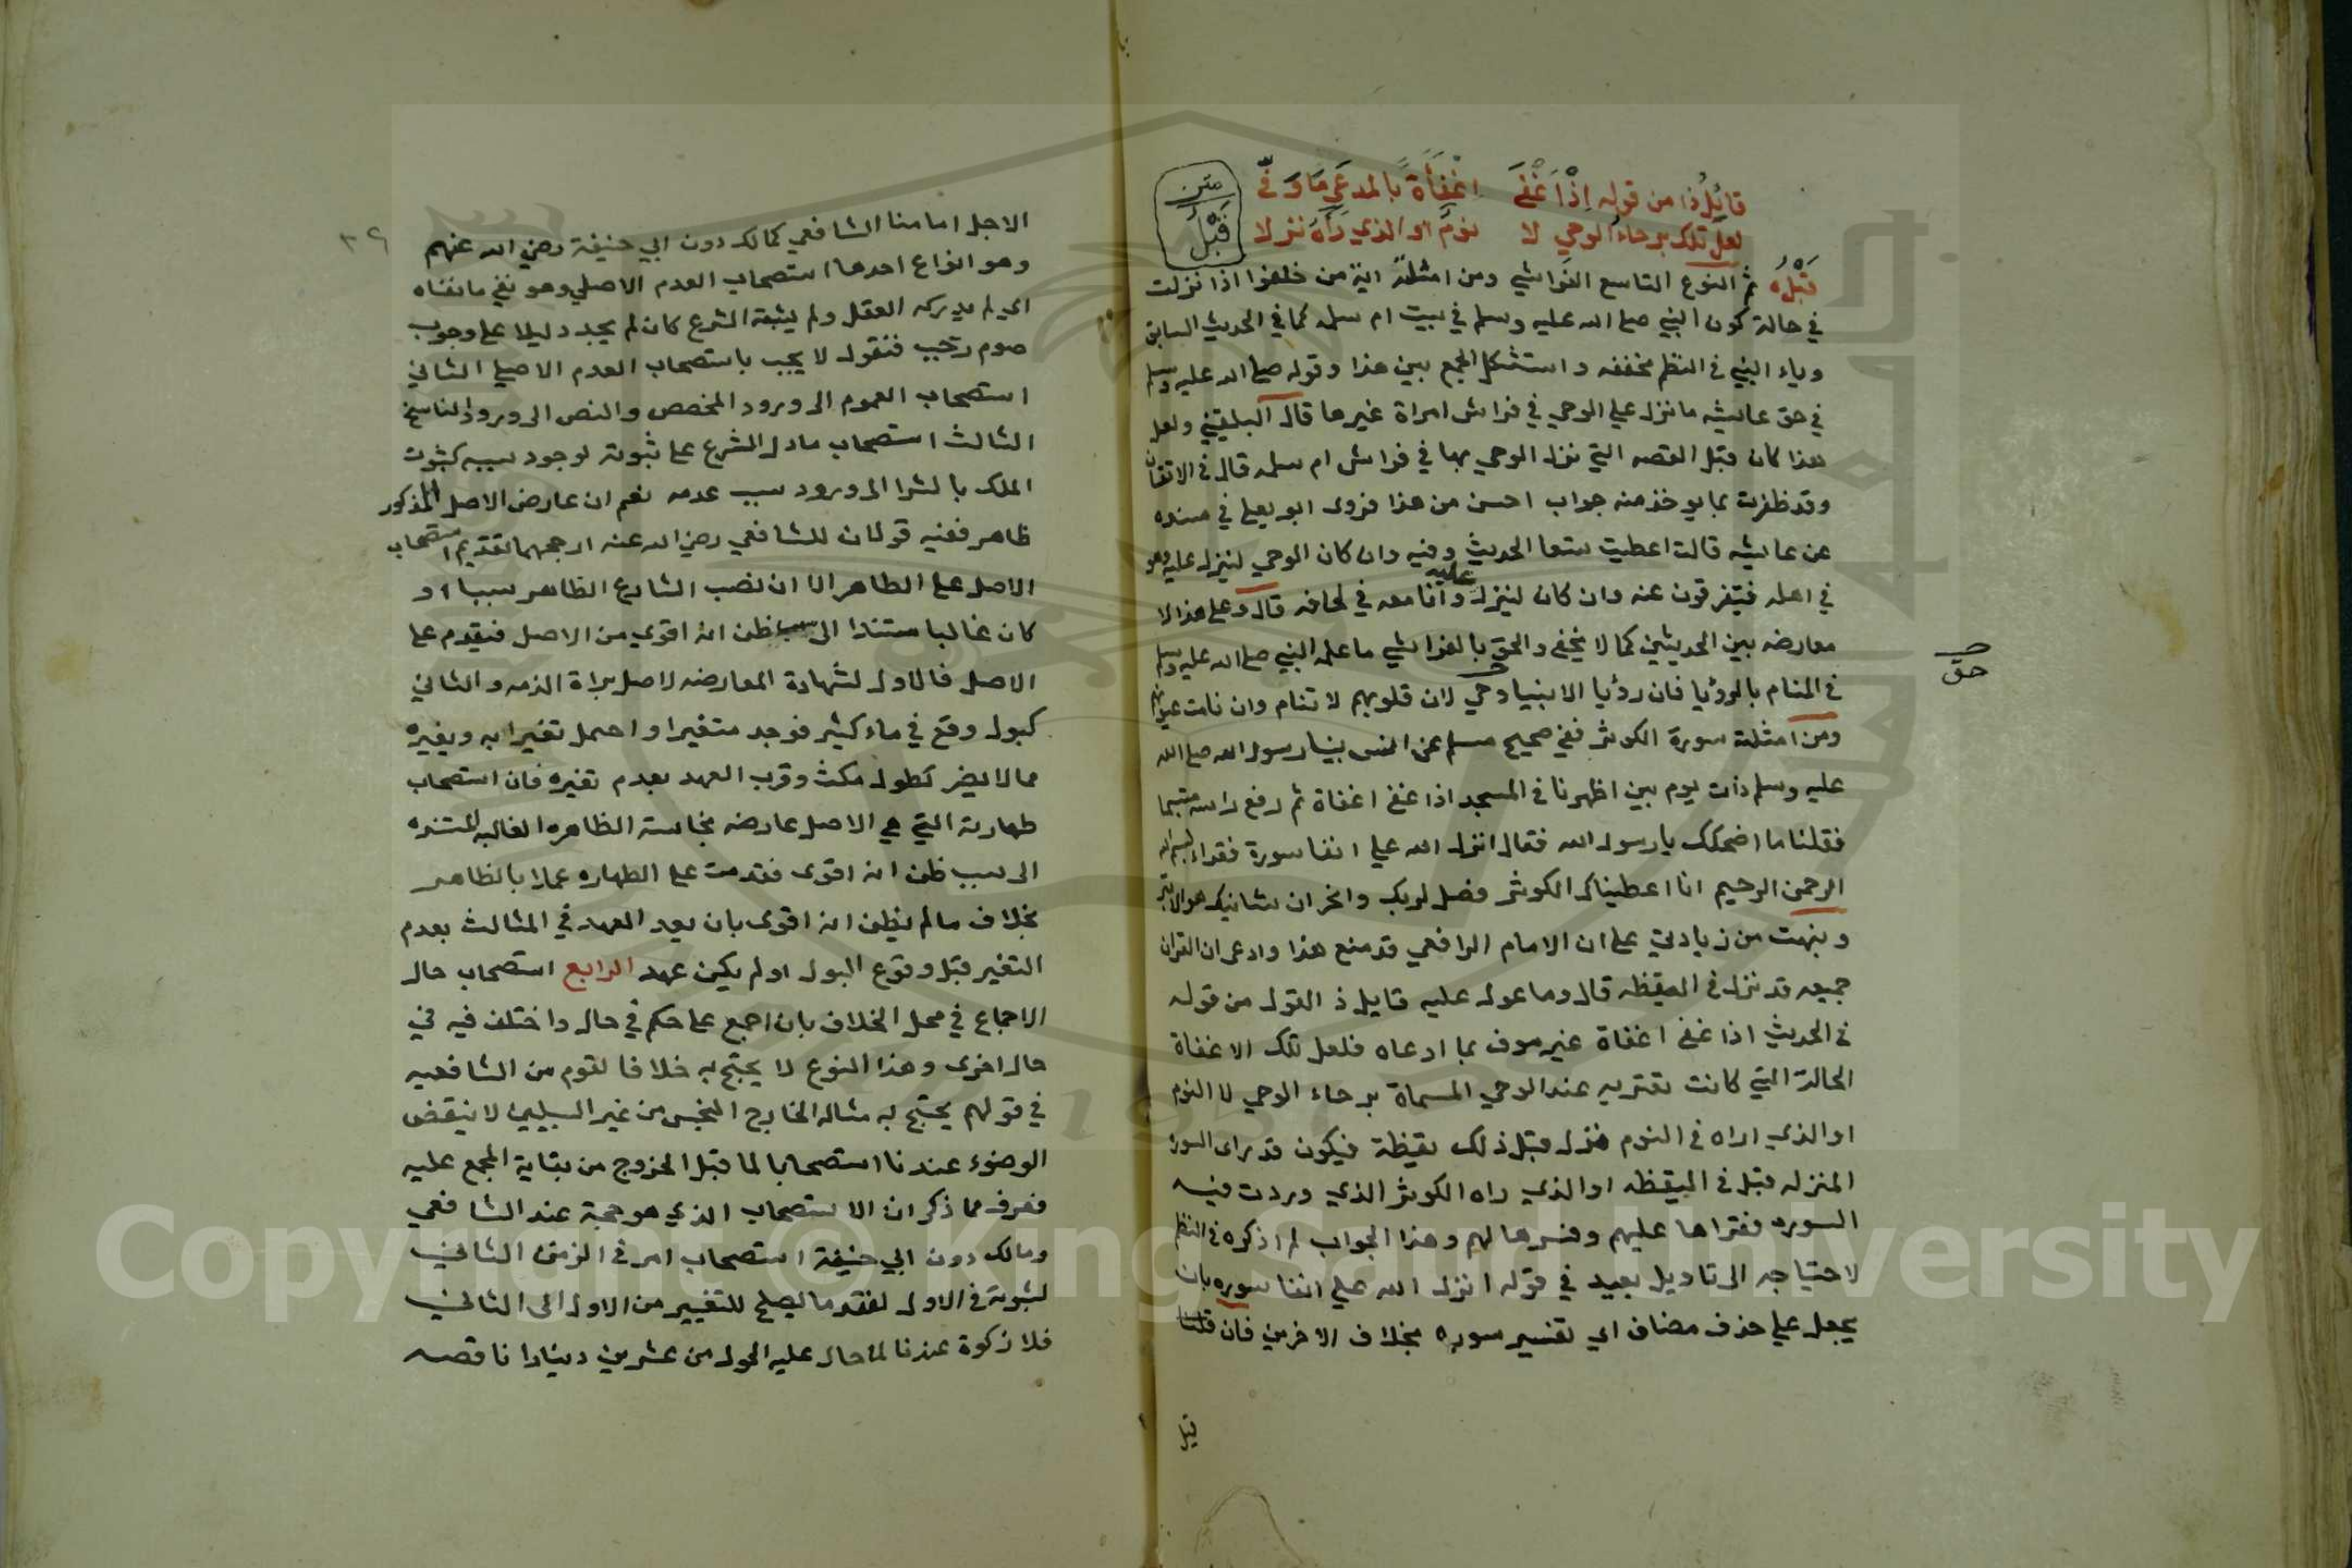 قائل ذا من قوله إذ أغفى اغفأة بالمدعى ما وفى
لعل تلك برحاء الوحي لا نوم او الذي رآه نزلا
متن
قبل
قبله ثم النوع التاسع الفراشي ومن امثلته اية من خلفوا اذا نزلت
في حالة كون النبي صلى الله عليه وسلم في بيت ام سلمه كما في الحديث السابق
وياء النبي في النظم مخففه واستشكل الجمع بين هذا وقوله صلى الله عليه وسلم
في حق عايشه ما نزل علي الوحي في فراش امراة غيرها قال البلقيني ولعل
هذا كان قبل القصه التي نزل الوحي بها في فراش ام سلمه قال في الاتقان
وقد ظفرت بما يوخذ منه جواب احسن من هذا فروى ابو يعلى في مسنده
عن عايشه قالت اعطيت تسعا الحديث وفيه وان كان الوحي لينزل عليه وهو
في اهله فيتفرقون عنه وان كان لينزل عليه وانا معه في لحافه قال وعلى هذا لا
معارضه بين الحديثين كما لا يخفى والحق بالفراشي ما علمه النبي صلى الله عليه وسلم
حق
في المنام بالرؤيا فان رؤيا الانبيا وحي لان قلوبهم لا تنام وان نامت عيونهم
ومن امثلته سورة الكوثر ففي صحيح مسلم عن انس بينا رسول الله صلى الله
عليه وسلم ذات يوم بين اظهرنا في المسجد اذا غفى اغفاة ثم رفع راسه متبسما
فقلنا ما اضحكك يا رسول الله فقال انزل الله علي انفا سورة فقراء بسم الله
الرحمن الرحيم انا اعطيناك الكوثر فصل لربك وانحر ان شانيك هو الابتر
ونبهت من زيادتي على ان الامام الرافعي قد منع هذا وادعى ان القران
جميعه قد نزل في اليقظه قال وما عول عليه قايل ذ القول من قوله
في الحديث اذا غفى اغفاة غير موف بما ادعاه فلعل تلك الاغفاة
الحالة التي كانت تعتريه عند الوحي المسماة برحاء الوحي لا النوم
او الذي اراه في النوم فنزل قبل ذلك يقظة فيكون قد راى السوره
المنزله قبل في اليقظه او الذي راه الكوثر الذي وردت فيه
السوره فقراها عليهم وفسرها لهم وهذا الجواب لم اذكره في النظم
لاحتياجه الى تاويل بعيد في قوله انزل الله علي انفا سوره بان
يجعل علي حذف مضاف اي تفسير سوره بخلاف الاخرين فان قلنا
قبل
٣٩
الاجل امامنا الشافعي كمالك دون ابي حنيفة رضي الله عنهم
وهو انواع احدها استصحاب العدم الاصلي وهو نفي ما نفاه
اي لم يدركه العقل ولم يثبته الشرع كان لم يجد دليلا على وجوب
صوم رجب فنقول لا يجب باستصحاب العدم الاصلي الثاني
استصحاب العموم الى ورود المخصص والنص الى ورود الناسخ
الثالث استصحاب ما دل الشرع على ثبوته لوجود سببه كثبوت
الملك بالشرا الى ورود سبب عدمه نعم ان عارض الاصل المذكور
ظاهر ففيه قولان للشافعي رضي الله عنه ارجحهما تقديم استصحاب
الاصل على الظاهر الا ان نصب الشارع الظاهر سببا او
كان غالبا مستندا الى سبب ظن انه اقوي من الاصل فيقدم على
الاصل فالاول لشهادة المعارضه لاصل براة الذمه والثاني
كبول وقع في ماء كثير فوجد متغيرا واحتمل تغيرا به وبغيره
مما لا يضر كطول مكث وقرب العهد بعدم تغيره فان استصحاب
طهارته التي هي الاصل عارضه نجاسته الظاهره الغالبه المستنده
الى سبب ظن انه اقوى فقدمت على الطهاره عملا بالظاهر
بخلاف مالم يظن انه اقوى بان بعد العهد في المثالث بعدم
التغير قبل وقوع البول او لم يكن عهد الرابع استصحاب حال
الاجماع في محل الخلاف بان اجمع على حكم في حال واختلف فيه في
حال اخرى وهذا النوع لا يحتج به خلافا لقوم من الشافعيه
في قولهم يحتج به مثاله الخارج النجس من غير السبيلين لا ينقض
الوضوء عندنا استصحابا لما قبل الخروج من بقاية المجمع عليه
فعرف مما ذكر ان الاستصحاب الذي هو حجة عند الشافعي
ومالك دون ابي حنيفة استصحاب امر في الزمن الثاني
لثبوته في الاول لفقد ما يصلح للتغيير من الاول الى الثاني
فلا زكوة عندنا لما حال عليه الحول من عشرين دينارا ناقصه
Copyright © King Saud University